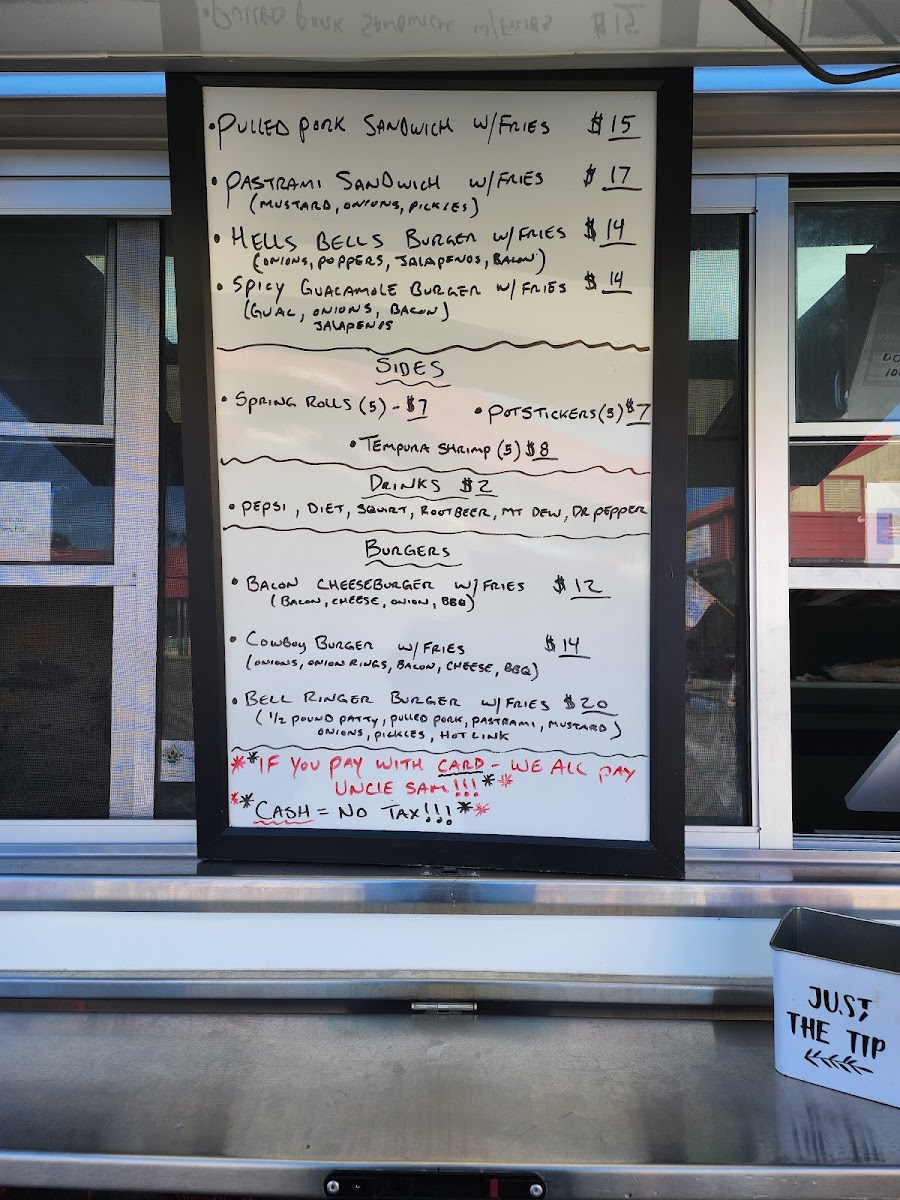 •PULLED PORK SANDWICH W/FRIES $15
•PASTRAMI SANDWICH W/FRIES $17
(MUSTARD, ONIONS, PICKLES)
•HELLS BELLS BURGER W/FRIES $14
(ONIONS, POPPERS, JALAPENOS, BACON)
•SPICY GUACAMOLE BURGER W/FRIES $14
(GUAC, ONIONS, BACON)
JALAPENOS
SIDES
•SPRING ROLLS (5) - $7 •POTSTICKERS (5) $7
•TEMPURA SHRIMP (5) $8
DRINKS $2
•PEPSI, DIET, SQUIRT, ROOTBEER, MT DEW, DR PEPPER
BURGERS
•BACON CHEESEBURGER W/FRIES $12
(BACON, CHEESE, ONION, BBQ)
•COWBOY BURGER W/FRIES $14
(ONIONS, ONION RINGS, BACON, CHEESE, BBQ)
•BELL RINGER BURGER W/FRIES $20
(1/2 POUND PATTY, PULLED PORK, PASTRAMI, MUSTARD)
ONIONS, PICKLES, HOT LINK
**IF YOU PAY WITH CARD - WE ALL PAY
UNCLE SAM!!!**
**CASH = NO TAX!!!**
JUST
THE TIP